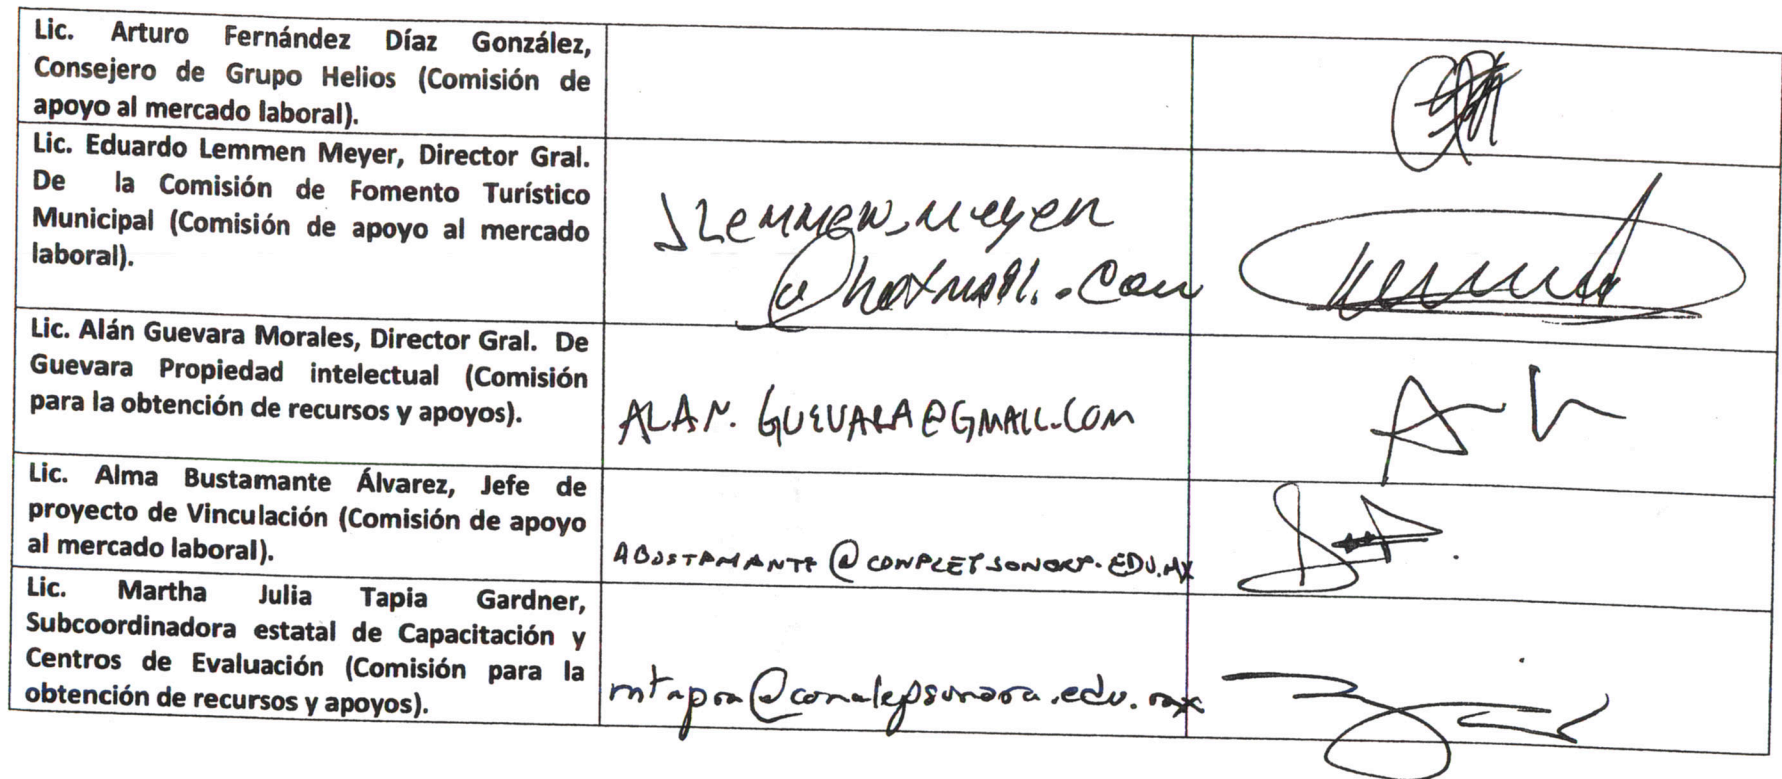 Lic. Arturo Fernández Díaz González,
Consejero de Grupo Helios (Comisión de
apoyo al mercado laboral).
Lic. Eduardo Lemmen Meyer, Director Gral.
De la Comisión de Fomento Turístico
Municipal (Comisión de apoyo al mercado
laboral).
JLemmen_meyer
@hotmail.com
Lic. Alán Guevara Morales, Director Gral. De
Guevara Propiedad intelectual (Comisión
para la obtención de recursos y apoyos).
ALAN.GUEVARA@GMAIL.COM
Lic. Alma Bustamante Álvarez, Jefe de
proyecto de Vinculación (Comisión de apoyo
al mercado laboral).
ABUSTAMANTE@CONALEPSONORA.EDU.MX
Lic. Martha Julia Tapia Gardner,
Subcoordinadora estatal de Capacitación y
Centros de Evaluación (Comisión para la
obtención de recursos y apoyos).
mtapia@conalepsonora.edu.mx